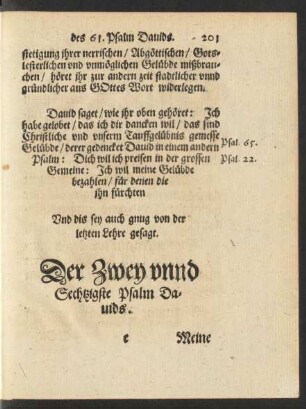 des 61. Psalm Dauids. 201
stetigung jhrer nerrischen / Abgöttischen / Gots-
lesterlichen vnd vnmöglichen Gelübde mißbrau-
chen / höret jhr zur andern zeit stadtlicher vnnd
gründlicher aus GOttes Wort widerlegen.
Dauid saget / wie jhr oben gehöret: Jch
habe gelobet / das ich dir dancken wil / das sind
Christliche vnd vnserm Tauffgelübnis gemesse
Gelübde / derer gedencket Dauid in einem andern Psal. 65.
Psalm: Dich wil ich preisen in der grossen Psal. 22.
Gemeine: Jch wil meine Gelübde
bezahlen / für denen die
jhn fürchten
Vnd dis sey auch gnug von der
letzten Lehre gesagt.
Der Zwey vnnd
Sechtzigste Psalm Da-
uids.
c Meine